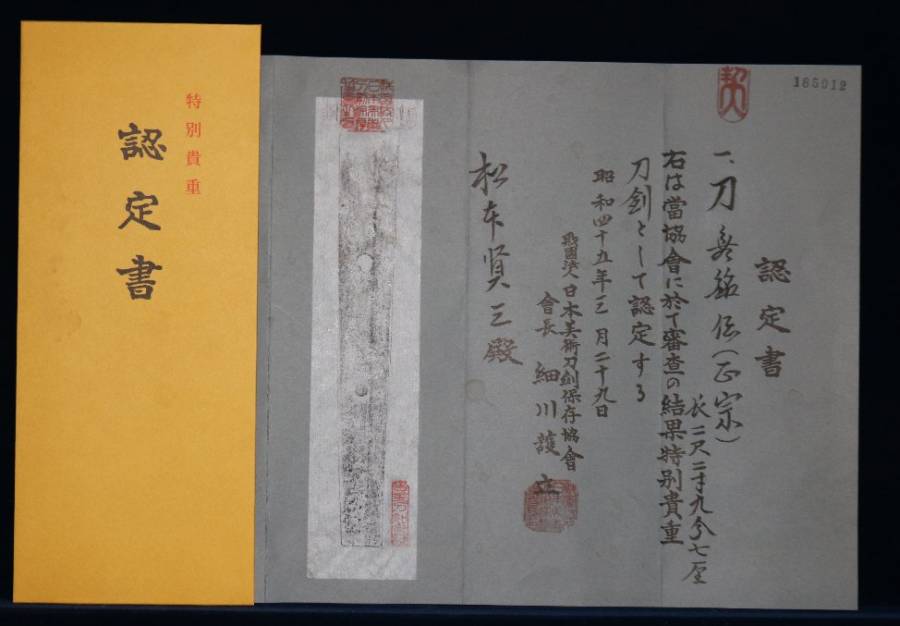 特別貴重
認定書
165012
認定書
一、刀 無銘 伝(正宗)
長二尺二寸九分七厘
右は當協會に於て審査の結果特別貴重
刀剣として認定する
昭和四十五年三月二十九日
財團法人日本美術刀剣保存協會
會長 細川護立
松本賢三殿